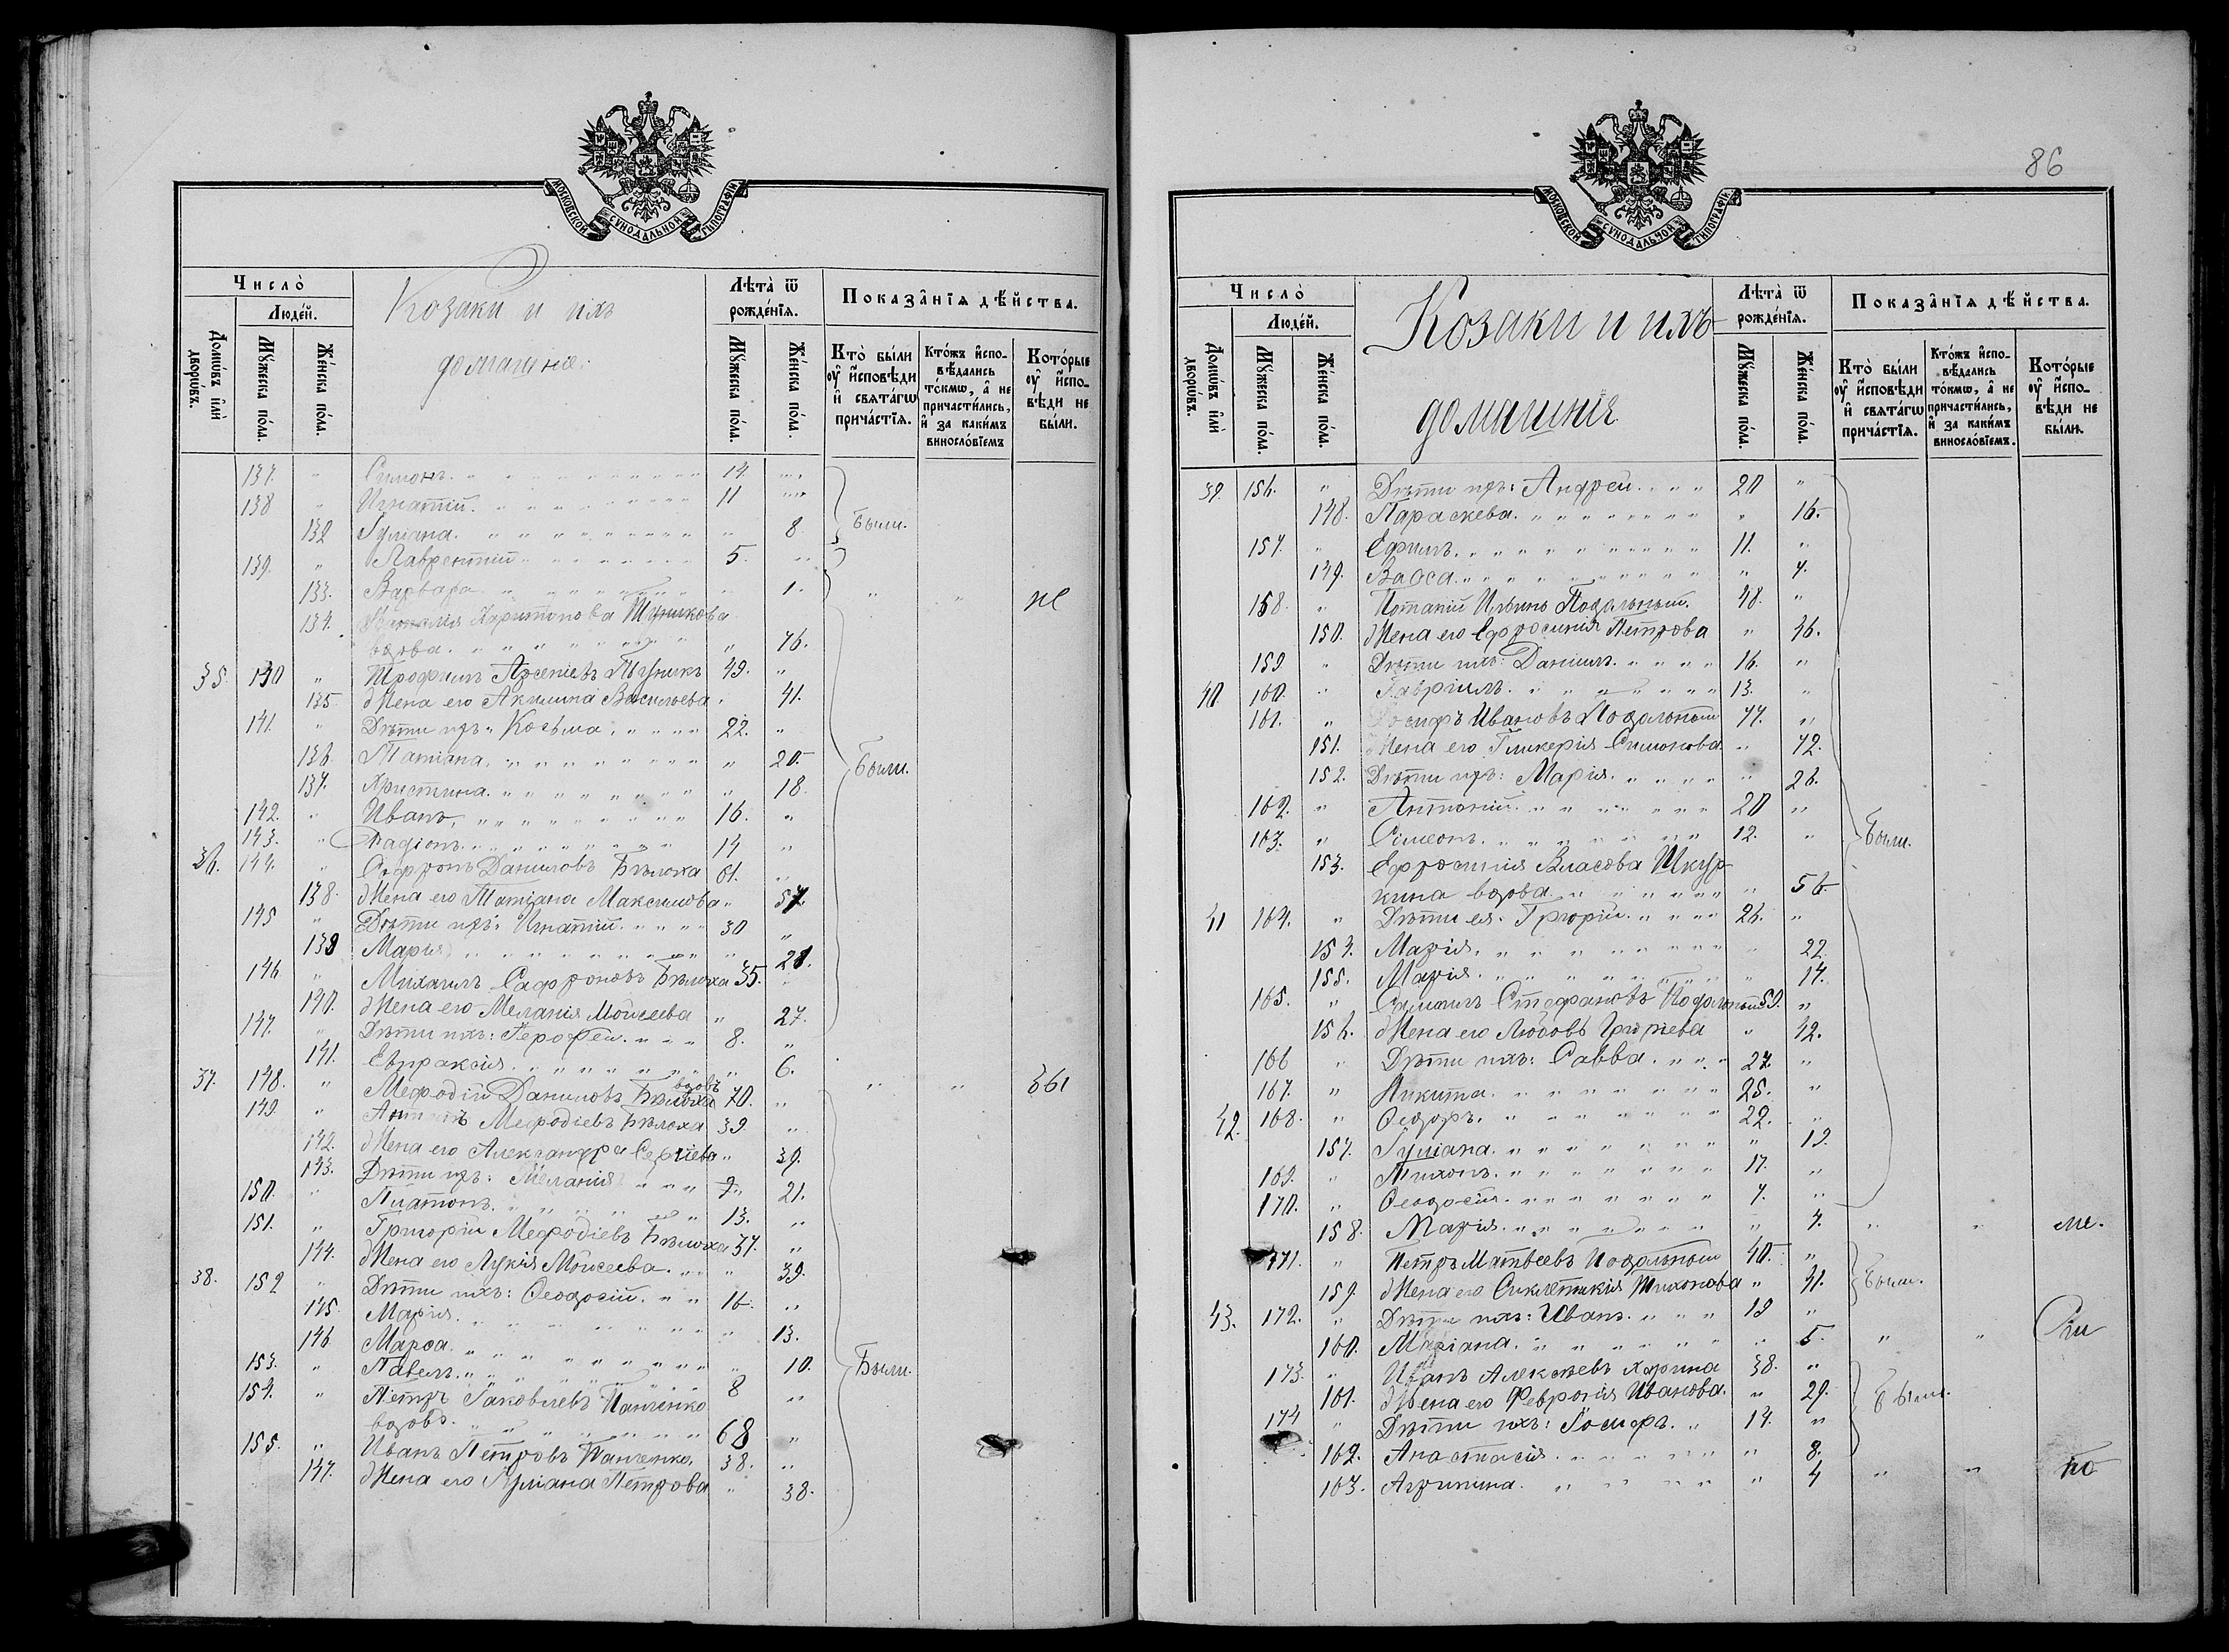 МОСКОВСКОЙ СѴНОДАЛЬНОЙ ТИПОГРАФІИ
Число̀
Люде́й.
Домѡ́въ и҆лѝ дворѡ́въ.
Мꙋ́жеска по́ла.
Же́нска по́ла.
Козаки и ихъ
домашніе.
Лѣ́та ѿ рожде́нїѧ.
Мꙋ́жеска по́ла.
Же́нска по́ла.
Показа̑нїѧ дѣ́йства.
Кто̀ бы́ли ᲂу҆ и҆́сповѣди и҆ свѧта́гѡ прича́стїѧ.
Кто́жъ и҆спо-вѣ́дались то́кмѡ, а҆ не причасти́лись, и҆ за каки́мъ виносло́вїемъ
Кото́рые ᲂу҆ и҆́спо-вѣди не бы́ли.
137. " Симонъ. 14. "
138 " Игнатій. 11 "
132 Іуліана. " 8. Были.
139. " Лаврентій 5. "
133. Варвара " 1. " " не
134. Харитонова Шуликова
вдова. " 76.
35. 140 " Трофимъ Арсеніевъ 49. "
135 Жена его Акилина Васильева " 41.
141. " Дѣти ихъ: Козьма 22. "
136 Татіана " 20. Были.
137. Христина. " 18.
142. " Иванъ 16. "
143. " Радіонъ 14 "
36. 144. " Софронъ Даниловъ Бѣлоха 61. "
138. Жена его Татіана Максимова " 57.
145 " Дѣти ихъ: Игнатій. 30 "
139 Марія " 21.
146 " Михаилъ Сафроновъ Бѣлоха 35. "
140. Жена его Меланія Моисеева " 27.
147. " Дѣти ихъ: Ерофей. 8. "
141. Евпраксія. " 6.
37. 148. " Мефодій Даниловъ Бѣлоха вдовъ 70. " " " бы
149. " Мефодіевъ Бѣлоха 39 "
142. Жена его Александра Сергіева " 39.
143. Дѣти ихъ: Меланія " 21.
150. " Платонъ. 13. "
151. " Григорій Мефодіевъ Бѣлоха 37. "
144. Жена его Лукія Моисеева. " 39.
38. 152 " Дѣти ихъ: Ѳеодосій. 16. "
145. Марія. " 13.
146 Марѳа. " 10. Были.
153. " Павелъ. 8 "
154. " Петръ Іаковлевъ Панченко
вдовъ. 68 "
155. " Иванъ Петровъ Панченко. 38. "
147. Жена его Іуліана Петрова " 38.
86
МОСКОВСКОЙ СѴНОДАЛЬНОЙ ТИПОГРАФІИ
Число̀
Люде́й.
Домѡ́въ и҆лѝ дворѡ́въ.
Мꙋ́жеска по́ла.
Же́нска по́ла.
Козаки и ихъ
домашніе
Лѣ́та ѿ рожде́нїѧ.
Мꙋ́жеска по́ла.
Же́нска по́ла.
Показа̑нїѧ дѣ́йства.
Кто̀ бы́ли ᲂу҆ и҆́сповѣди и҆ свѧта́гѡ прича́стїѧ.
Кто́жъ и҆спо-вѣ́дались то́кмѡ, а҆ не причасти́лись, и҆ за каки́мъ виносло́вїемъ.
Кото́рые ᲂу҆ и҆́спо-вѣди не бы́ли.
39. 156. " Дѣти ихъ: Андрей. 20 "
148. Параскева. " 16.
157. " Ефимъ. 11. "
149. Васса. " 7.
158. " Потапій Ильинъ Подольный. 48. "
150. Жена его Ефросинія Петрова " 46.
159 " Дѣти ихъ: Даніилъ. 16. "
40. 160. " Гавріилъ. 13. "
161. " Іосифъ Ивановъ Подольный 44. "
151. Жена его Гликерія Симонова " 42.
152. Дѣти ихъ: Марія. " 26.
162. " Антоній. 20 "
163. " Сімеонъ. 12. " Были.
153. Ефросинія Власова Шкур-
кина вдова " 56
41 164. " Дѣти ея: Григорій. 26. "
154. Марія. " 22
155. Марія. " 14.
165. " Самуилъ Стефановъ Подольный 59. "
156. Жена его Любовъ Григоріева " 42.
166 " Дѣти ихъ: Савва. 27. "
167. " Никита. 25. "
42. 168. " Ѳеодоръ. 22. "
157. Іуліана. " 19.
169. " Тихонъ. 17. "
170. " Ѳеодосій. 7. "
158. Марія. " 4. " " ли.
171. " Петръ Матвеевъ Подольный 40. "
159. Жена его Синклитикія Тихонова " 41. Были.
43. 172. " Дѣти ихъ: Иванъ. 19 "
160. Маріана. " 5. " "
173. " Иванъ Алексѣевъ 38. "
161. Жена его Февронія Иванова. " 29. Были.
174 " Дѣти ихъ: Іосифъ. 14. "
162. Анастасія. " 8.
163. Агрипина. " 4 " " по